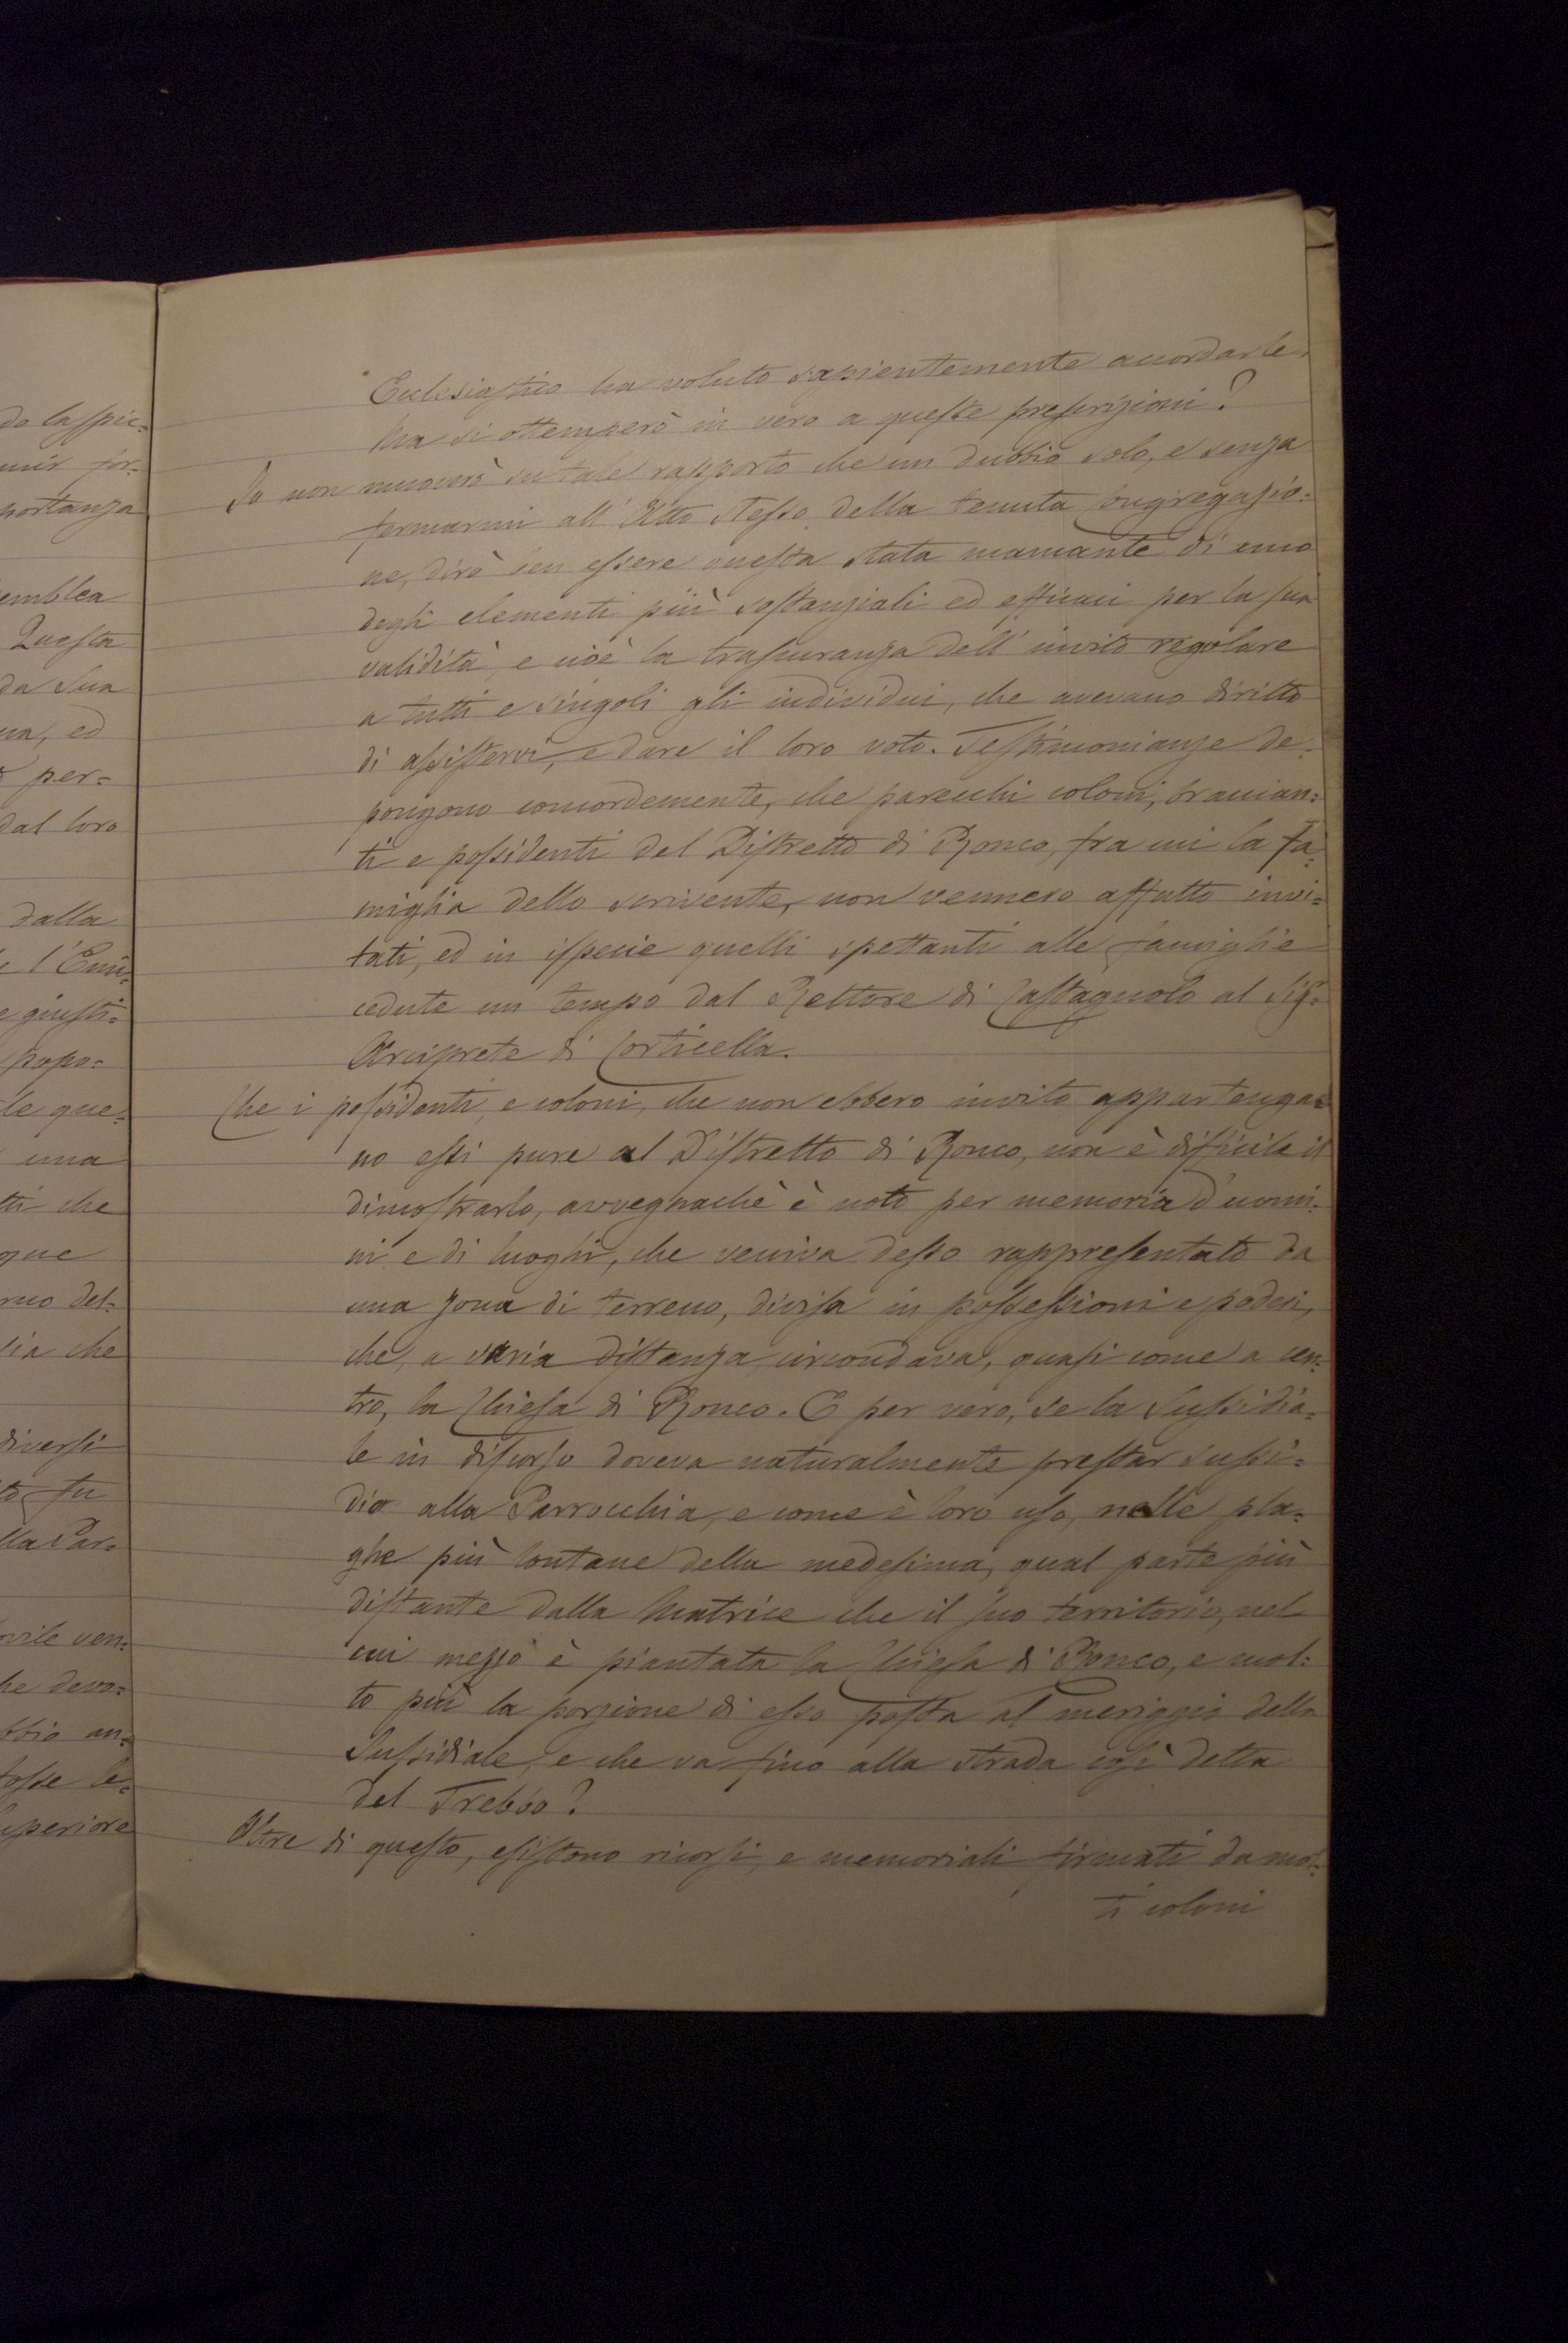 do laspic=
for=
portanza
emblea
Questa
da Sua
na, ed
per=
dal loro
dalla
l'Emi=
e giusti=
popo=
le que=
una
tti che
que
rno del=
lia che
diversi
to fu
lla Par=
civile ven=
he devo=
bbio an=
fosse le=
uperiore
Ecclesiastico ha voluto sapientemente accordarle,
Ma si ottemperò in vero a queste prescrizioni?
Io non muoverò su tale rapporto che un dubbio solo, e senza
fermarmi all'Atto stesso della tenuta Congregazio=
ne, dirò ben essere questa stata mancante di uno
degli elementi più sostanziali ed efficaci per la sua
validità, e cioè la trascuranza dell'invito regolare
a tutti e singoli gli individui, che avevano diritto
di assistervi, e dare il loro voto. Testimonianze de=
pongono concordemente, che parecchi coloni, braccian=
ti e possidenti del Distretto di Ronco, fra cui la fa=
miglia dello scrivente, non vennero affatto invi=
tati, ed in ispecie quelli spettanti alle famiglie
cedute un tempo dal Rettore di Castagnolo al Sig.
Arciprete di Corticella.
Che i possidenti, e coloni, che non ebbero invito appartenga=
no essi pure al Distretto di Ronco, non è difficile il
dimostrarlo, avvegnachè è noto per memoria d'uomi=
ni e di luoghi, che veniva desso rappresentato da
una zona di terreno, divisa in possessioni e poderi,
che, a varia distanza circondava, quasi come a cen=
tro, la Chiesa di Ronco. E per vero, se la Sussidia=
le in discorso doveva naturalmente prestar sussi=
dio alla Parrocchia, e come è loro uso, nelle pla=
ghe più lontane della medesima, qual parte più
distante dalla Matrice che il suo territorio, nel
cui mezzo è piantata la Chiesa di Ronco, e mol=
to più la porzione di esso posta al meriggio della
Sussidiale, e che va fino alla strada così detta
del Trebbo?
Oltre di questo, esistono ricorsi, e memoriali firmati da mol=
ti coloni